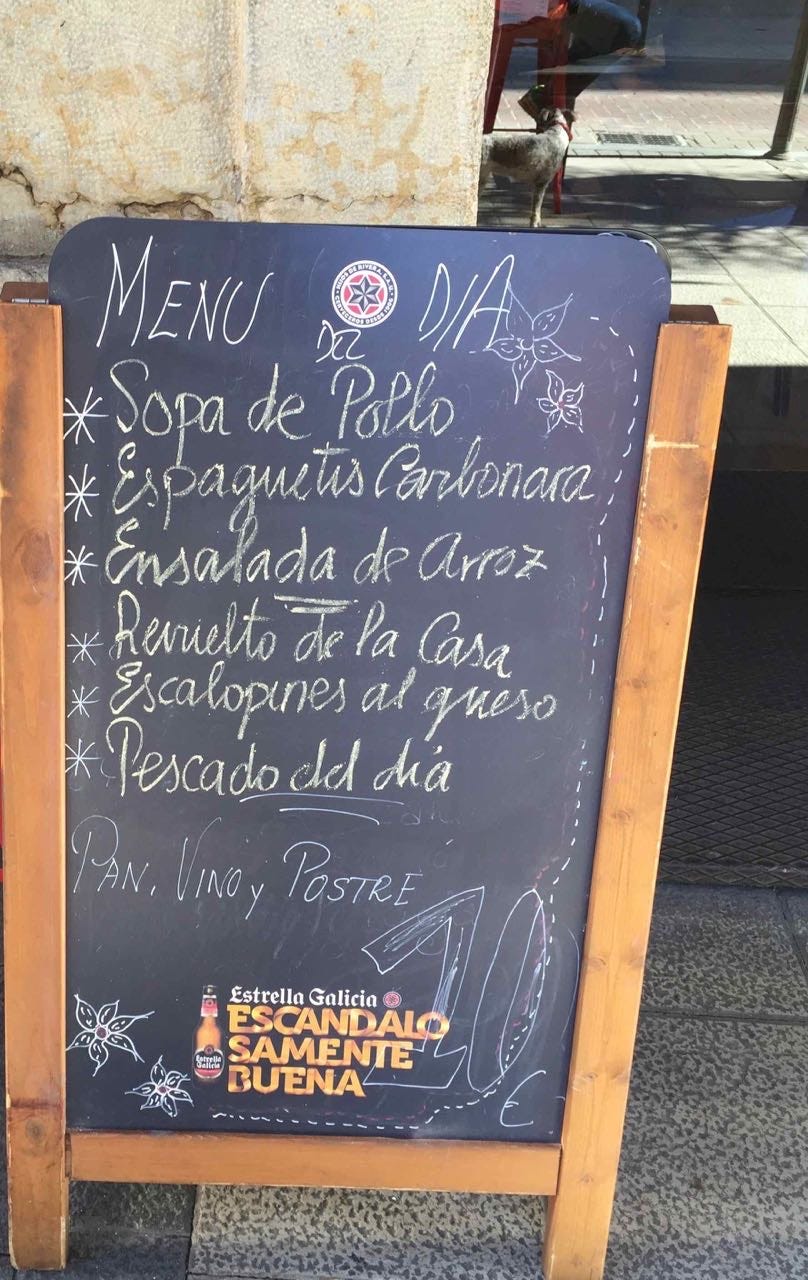 MENU DEL DIA
HIJOS DE RIVERA, S.A.U.
Sopa de Pollo
Espaguetis Carbonara
Ensalada de Arroz
Revuelto de la Casa
Escalopines al queso
Pescado del día
PAN, VINO y POSTRE
10 €
Estrella Galicia
ESCANDALO
SAMENTE
BUENA
Estrella
Galicia